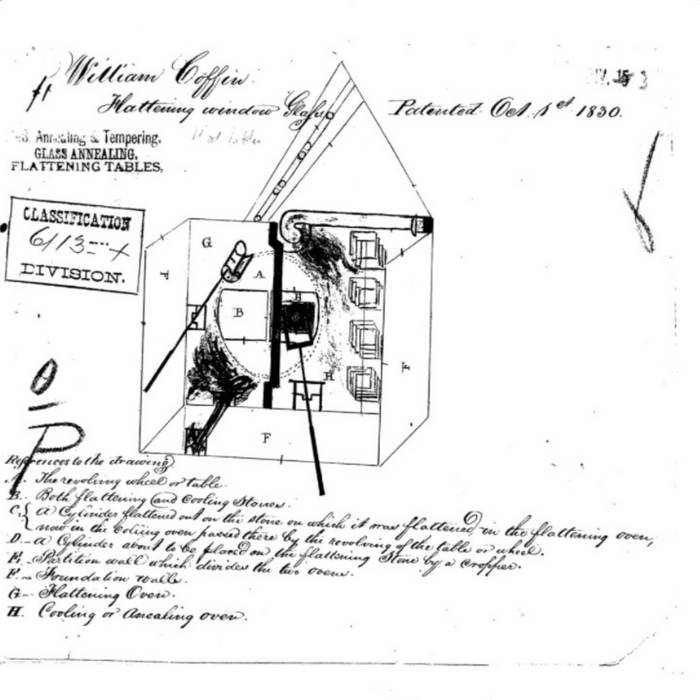 William Coffin.
Flattening window Glass
Patented Oct. 1st 1830.
Annealing & Tempering.
GLASS ANNEALING,
FLATTENING TABLES,
CLASSIFICATION
DIVISION.
G
A
B
B
H
F
References to the drawing
A. The revolving wheel or table.
B. Both flattening and cooling Stones.
C. a Cylinder flattened out on the stone on which it was flattened, in the flattening oven,
now in the cooling oven passed there by the revolving of the table or wheel.
D. a Cylinder about to be placed on the flattening Stone by a cropper.
E. Partition wall which divides the two ovens.
F. Foundation walls.
G. Flattening Oven.
H. Cooling or Anealing oven.